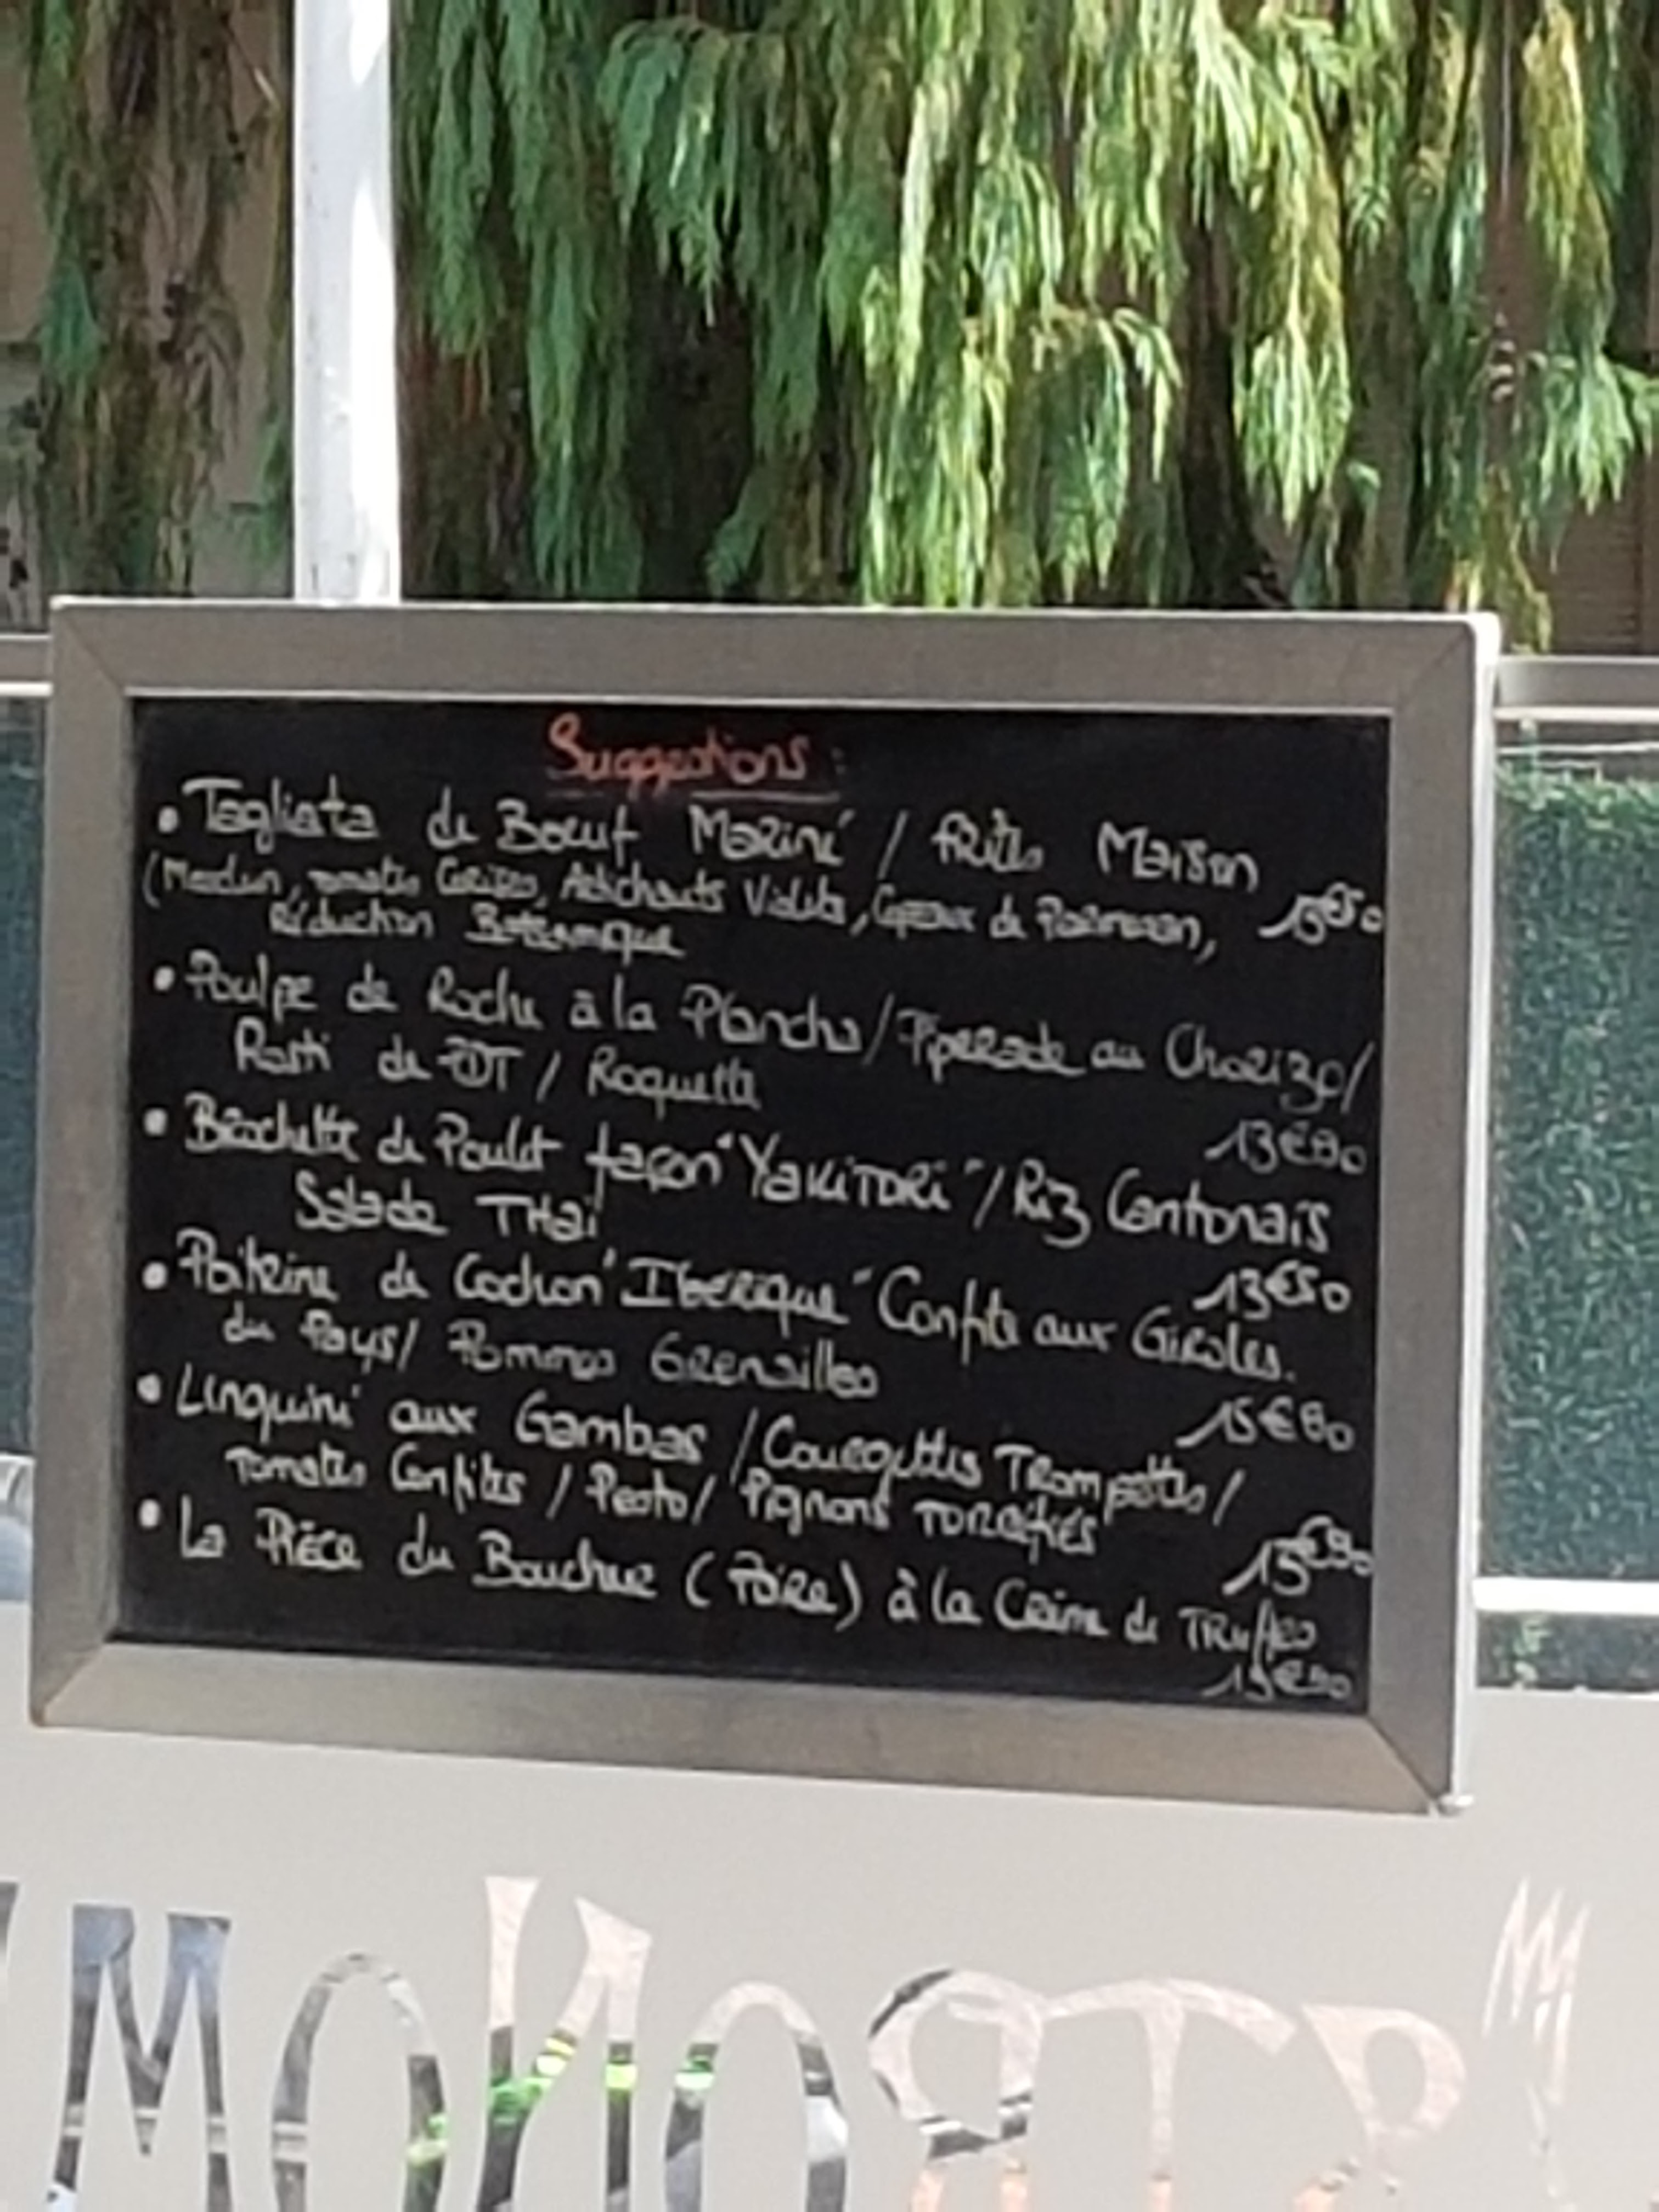 Suggestions :
• Tagliata de Boeuf Mariné / Frites Maison
(Mesclun, Tomates Cerises, Artichauts Violets, Copeaux de Parmesan,
Réduction Balsamique
• Poulpe de Roche à la Plancha / Piperade au Chorizo /
Rosti de PDT / Roquette
13€90
• Brochette de Poulet façon "YAKITORI" / Riz Cantonais
Salade THaï
13€50
• Poitrine de Cochon "Iberique" Confite aux Giroles.
du Pays / Pommes Grenailles
15€80
• Linguini aux Gambas / Courgettes Trompettes /
Tomates Confites / Pesto / Pignons TORREfiés
15€90
• La Pièce du Boucher (Poire) à la Crème de TRuffes